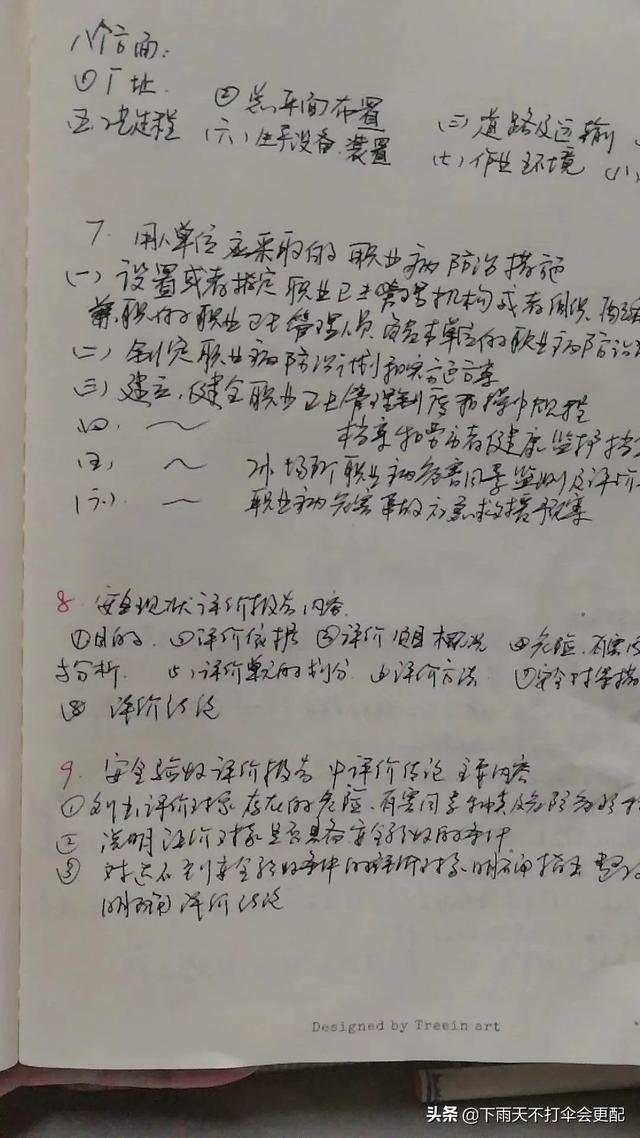 八个方面:
①厂址. ② 总平面布置 (三)道路及运输
五、工艺过程 (六)生产设备、装置 (七)作业环境 (八)
7. 用人单位应采取的 职业病防治措施
(一)设置或者指定职业卫生管理机构或者组织、配
兼职的职业卫生管理人员,负责本单位的职业病防治
(二)制定职业病防治计划和实施方案
(三)建立、健全职业卫生管理制度和操作规程
四、 ~ 档案和劳动者健康监护档
(五) ~ 工作场所职业病危害因素监测及评价
(六). ~ 职业病危害事故应急救援预案
8. 安全现状评价报告内容.
①目的. ②评价依据 ③评价项目概况 ④危险、有害因
与分析. (5)评价单元的划分 ⑥评价方法 ⑦安全对策措
⑧ 评价结论
9. 安全验收评价报告中评价结论主要内容
①列出评价对象存在的危险、有害因素种类及危险危害
② 说明评价对象是否具备安全验收的条件
③ 对达不到安全验收条件的评价对象,明确指出整改
明确评价结论
Designed by Treein art
头条 @下雨天不打伞会更配